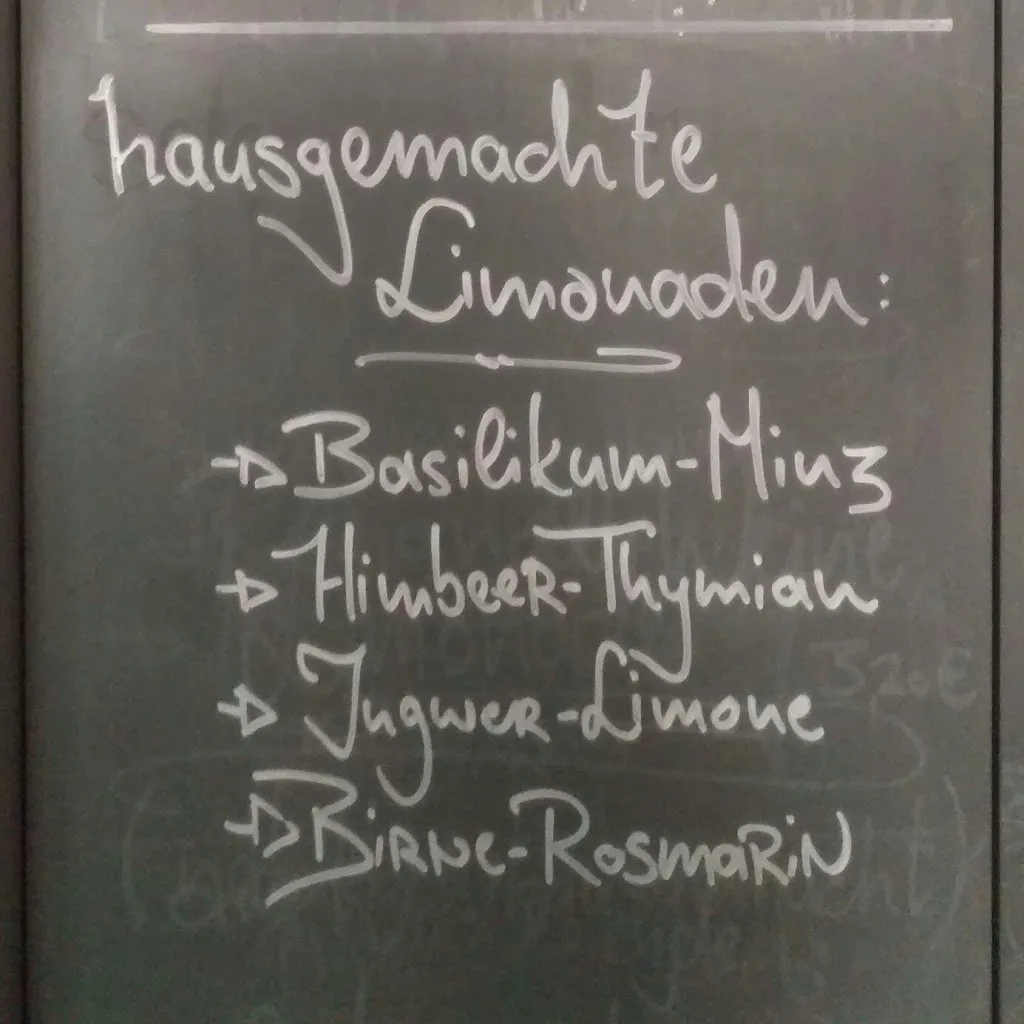 hausgemachte
Limonaden:
→ Basilikum-Minz
→ Himbeer-Thymian
→ Ingwer-Limone
→ Birne-Rosmarin